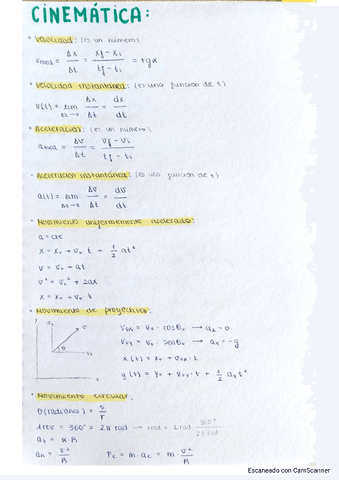 CINEMÁTICA:
• Velocidad: (es un número)
v_med = Δx/Δt = (x_f - x_i)/(t_f - t_i) = tgα
• Velocidad instantánea: (es una función de t)
v(t) = lim Δt→0 Δx/Δt = dx/dt
• Aceleración: (es un número)
a_med = Δv/Δt = (v_f - v_i)/(t_f - t_i)
• Aceleración instantánea: (es una función de t)
a(t) = lim Δt→0 Δv/Δt = dv/dt
• Movimiento uniformemente acelerado:
a = cte
x = x₀ + v₀ t + 1/2 at²
v = v₀ + at
v² = v₀² + 2ax
x = x₀ + v₀ t
• Movimiento de proyectiles:
= v₀ · cosθ₀ → aₓ = 0
= v₀ · senθ₀ → a_y = -g
x(t) = x₀ + v₀ₓ · t
y(t) = y₀ + v₀y · t + 1/2 a_y t²
θ
• Movimiento circular:
θ(radianes) = s/r
1 rev = 360° = 2π rad → 1 rad = 1 rad 360°/2π rad
= α · R
= v²/R
F_c = m · a_c = m · v²/R
Escaneado con CamScanner